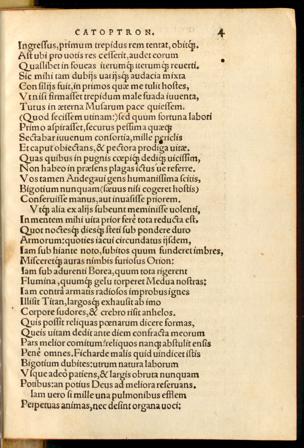 CATOPTRON. 4
Ingressus, primum trepidus rem tentat, obitq́;.
Ast ubi pro uotis res cesserit, audet eorum
Quaslibet in foueas iterumq́; iterumq́; reuerti.
Sic mihi tam dubijs uarijsq́; audacia mixta
Consilijs fuit, in primos quæ me tulit hostes,
Vt nisi firmasset trepidum male suada iuuenta,
Tutus in æterna Musarum pace quiessem.
(Quod fecissem utinam:) sed quum fortuna labori
Primo aspirasset, securus pessima quæq́;
Sectabar iuuenum consortia, mille periclis
Et caput obiectans, & pectora prodiga uitæ.
Quas quibus in pugnis cœpiq́; dediq́; uicissim,
Non habeo in præsens plagas ictus´ue referre.
Vos tamen Andegaui gens humanissima scitis,
Bigotium nunquam (sæuus nisi cogeret hostis)
Conseruisse manus, aut inuasisse priorem.
Vtq́; alia ex alijs subeunt meminisse uolenti,
In mentem mihi uita prior ferè tota reducta est,
Quot noctesq́; diesq́; steti sub pondere duro
Armorum: quoties iacui circundatus ijsdem,
Iam sub hiante noto, subitos quum funderet imbres,
Misceretq́; auras nimbis furiosus Orion:
Iam sub adurenti Borea, quum tota rigerent
Flumina, quumq́; gelu torperet Medua nostras:
Iam contrà armatis radiosos improbus ignes
Illisit Titan, largosq́; exhausit ab imo
Corpore sudores, & crebro risit anhelos.
Quis possit reliquas pœnarum dicere formas,
Queis uitam dedit ante diem confracta meorum
Pars melior comitum? reliquos nanq́; abstulit ensis
Penè omnes. Ficharde malis quid uindicet istis
Bigotium dubites: utrum natura laborum
Vsque adeò patiens, & largis obruta nunquam
Potibus: an potius Deus ad meliora reseruans.
Iam uero si mille una pulmonibus essem
Perpetuas animas, nec desint organa uoci;